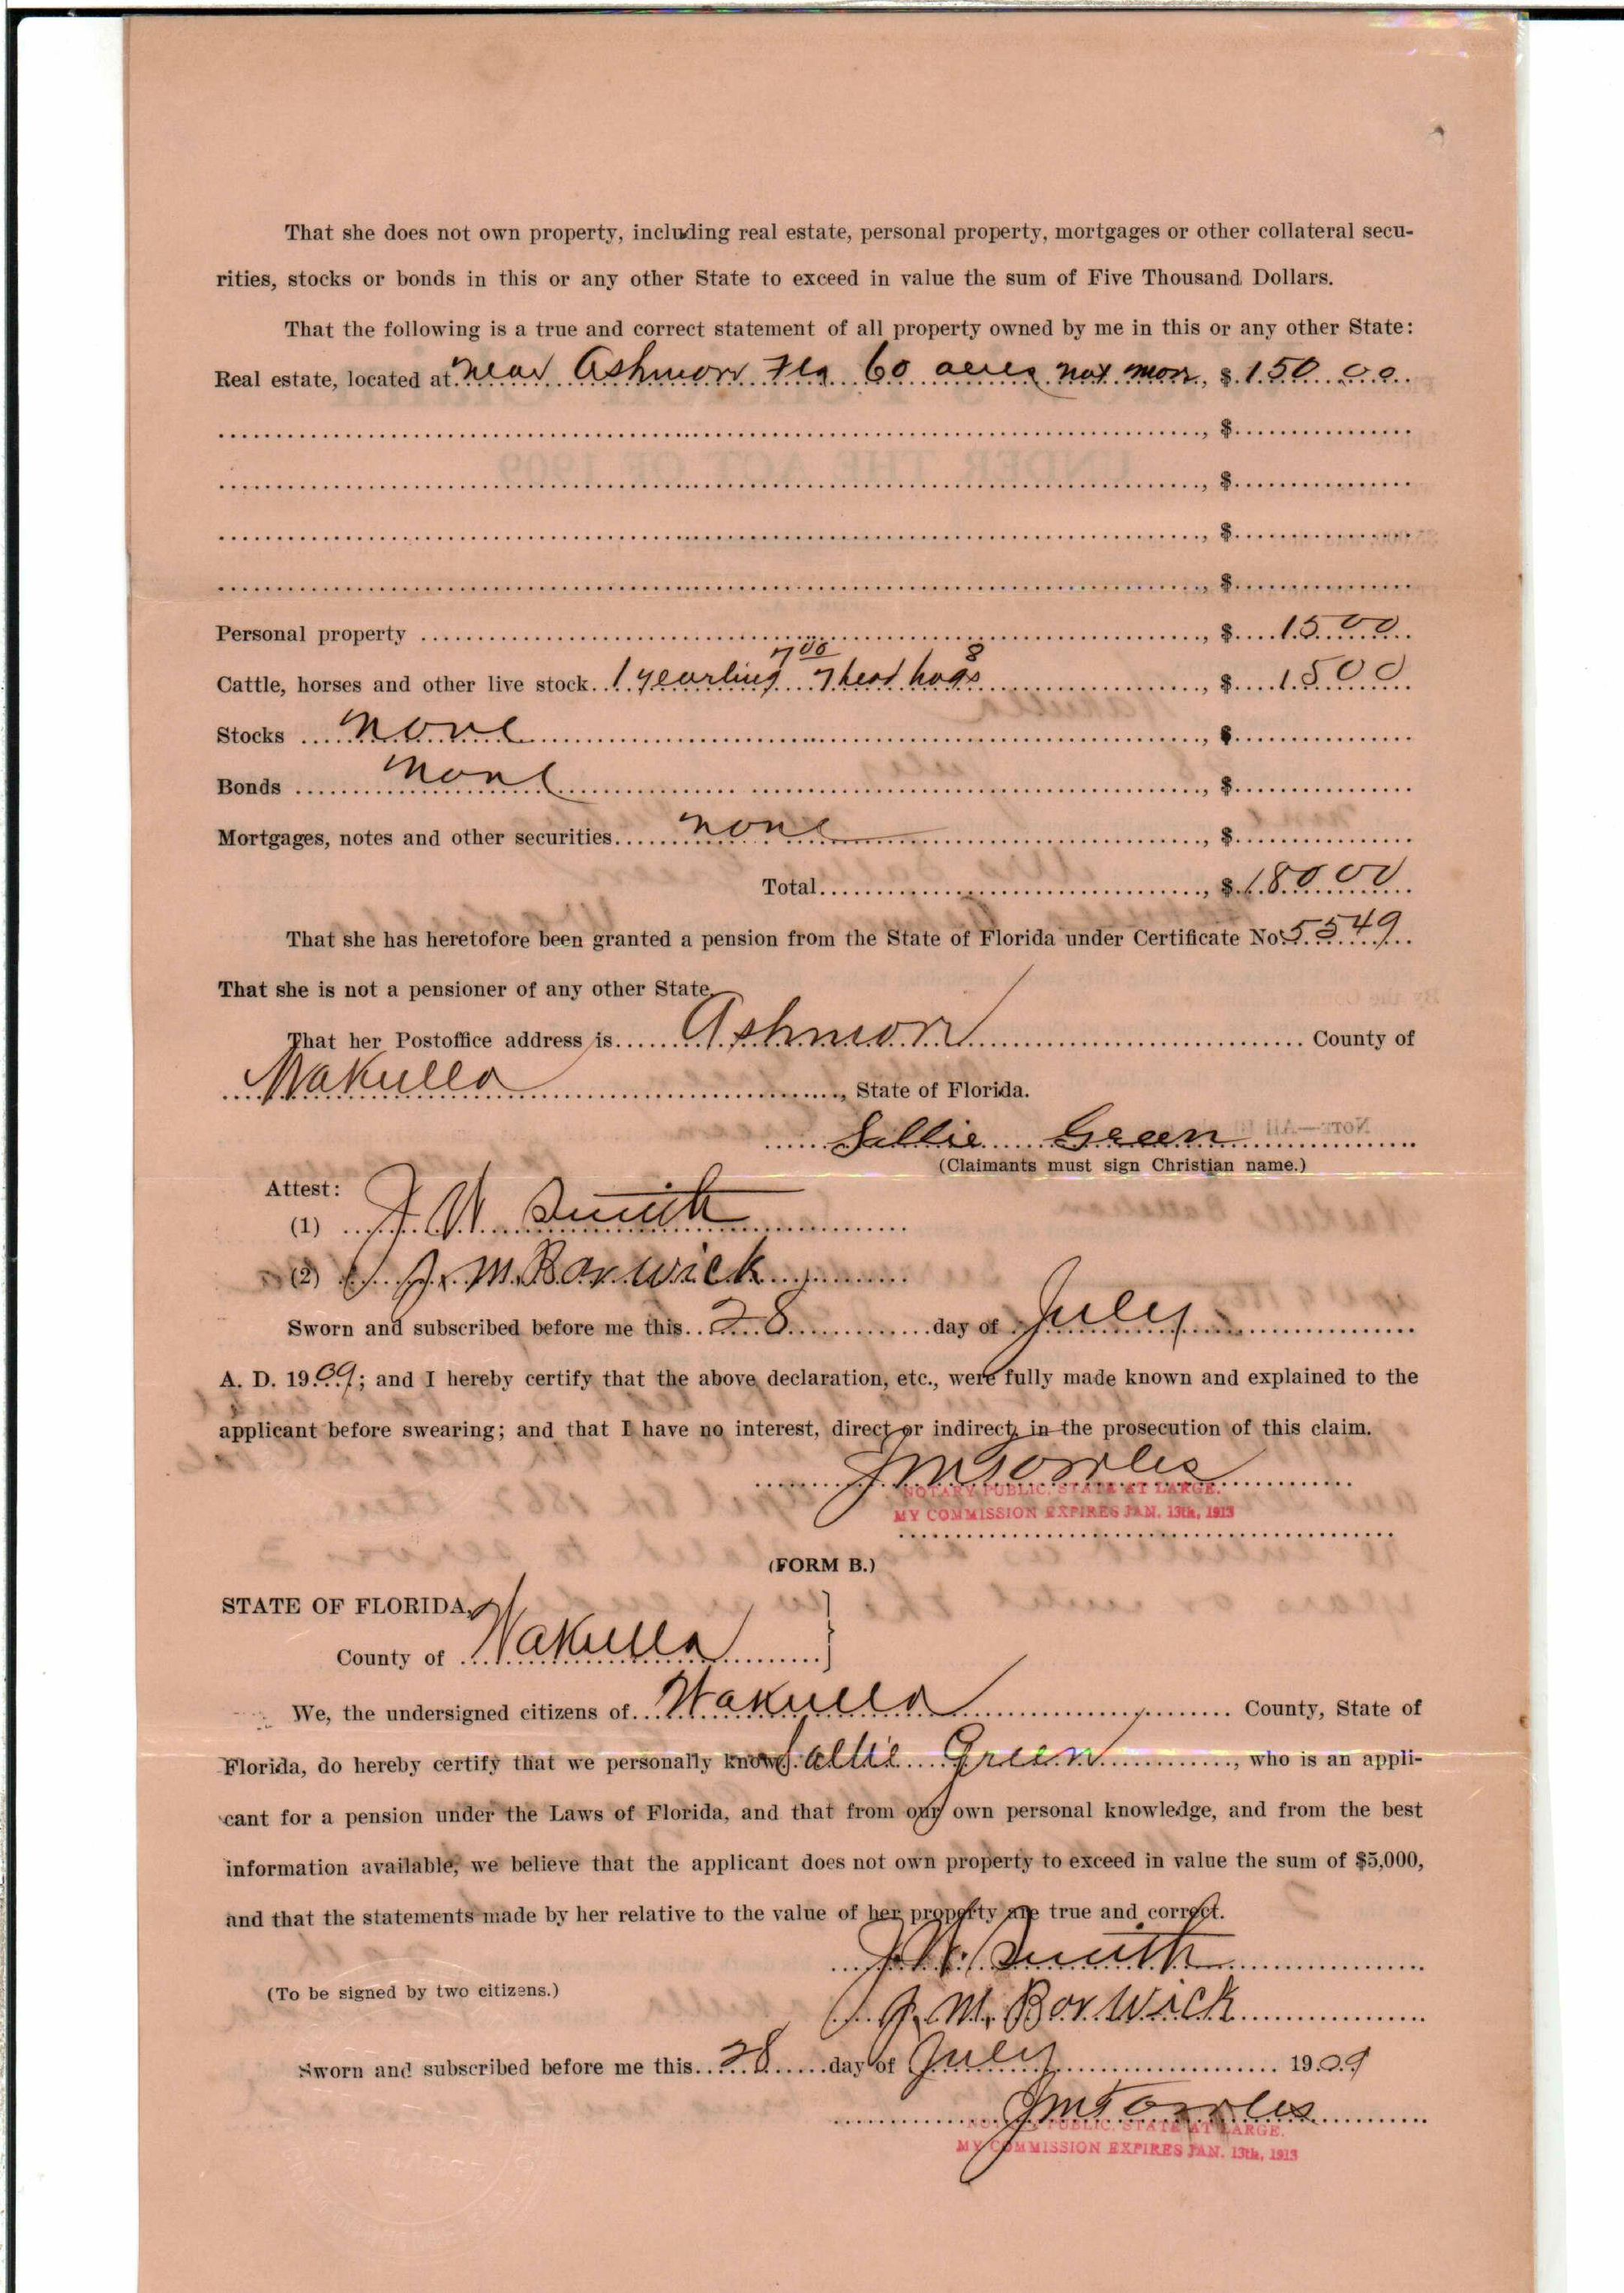 That she does not own property, including real estate, personal property, mortgages or other collateral secu-
rities, stocks or bonds in this or any other State to exceed in value the sum of Five Thousand Dollars.
That the following is a true and correct statement of all property owned by me in this or any other State:
Real estate, located at Near Ashmore Fla 60 acres not more, $ 150 00
, $
, $
, $
, $
Personal property , $ 15 00
7 00 8
Cattle, horses and other live stock 1 yearling 7 head hogs , $ 15 00
Stocks none , $
Bonds none , $
Mortgages, notes and other securities none , $
Total , $ 180 00
That she has heretofore been granted a pension from the State of Florida under Certificate No 5549
That she is not a pensioner of any other State.
That her Postoffice address is Ashmore County of
Wakulla , State of Florida.
Sallie Green
(Claimants must sign Christian name.)
Attest:
(1) J. W. Smith
(2) J. M. Barwick
Sworn and subscribed before me this 28 day of July
A. D. 1909; and I hereby certify that the above declaration, etc., were fully made known and explained to the
applicant before swearing; and that I have no interest, direct or indirect, in the prosecution of this claim.
J M Towles
NOTARY PUBLIC, STATE AT LARGE.
MY COMMISSION EXPIRES JAN. 13th, 1913
(FORM B.)
STATE OF FLORIDA,
County of Wakulla
We, the undersigned citizens of Wakulla County, State of
Florida, do hereby certify that we personally know Sallie Green , who is an appli-
cant for a pension under the Laws of Florida, and that from our own personal knowledge, and from the best
information available, we believe that the applicant does not own property to exceed in value the sum of $5,000,
and that the statements made by her relative to the value of her property are true and correct.
J. W. Smith
(To be signed by two citizens.)
J. M. Barwick
Sworn and subscribed before me this 28 day of July 1909
J M Towles
NOTARY PUBLIC, STATE AT LARGE.
MY COMMISSION EXPIRES JAN. 13th, 1913